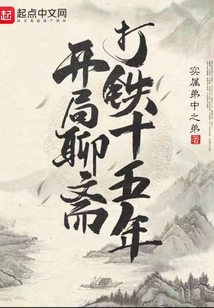 起点中文网
打铁十五年
开局聊斋
实属弟中之弟
著